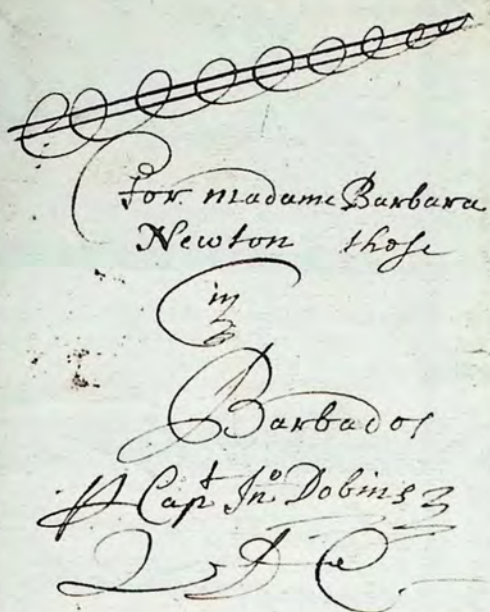 For madame Barbara
Newton these
in
Barbados
Capt Jno Dobins